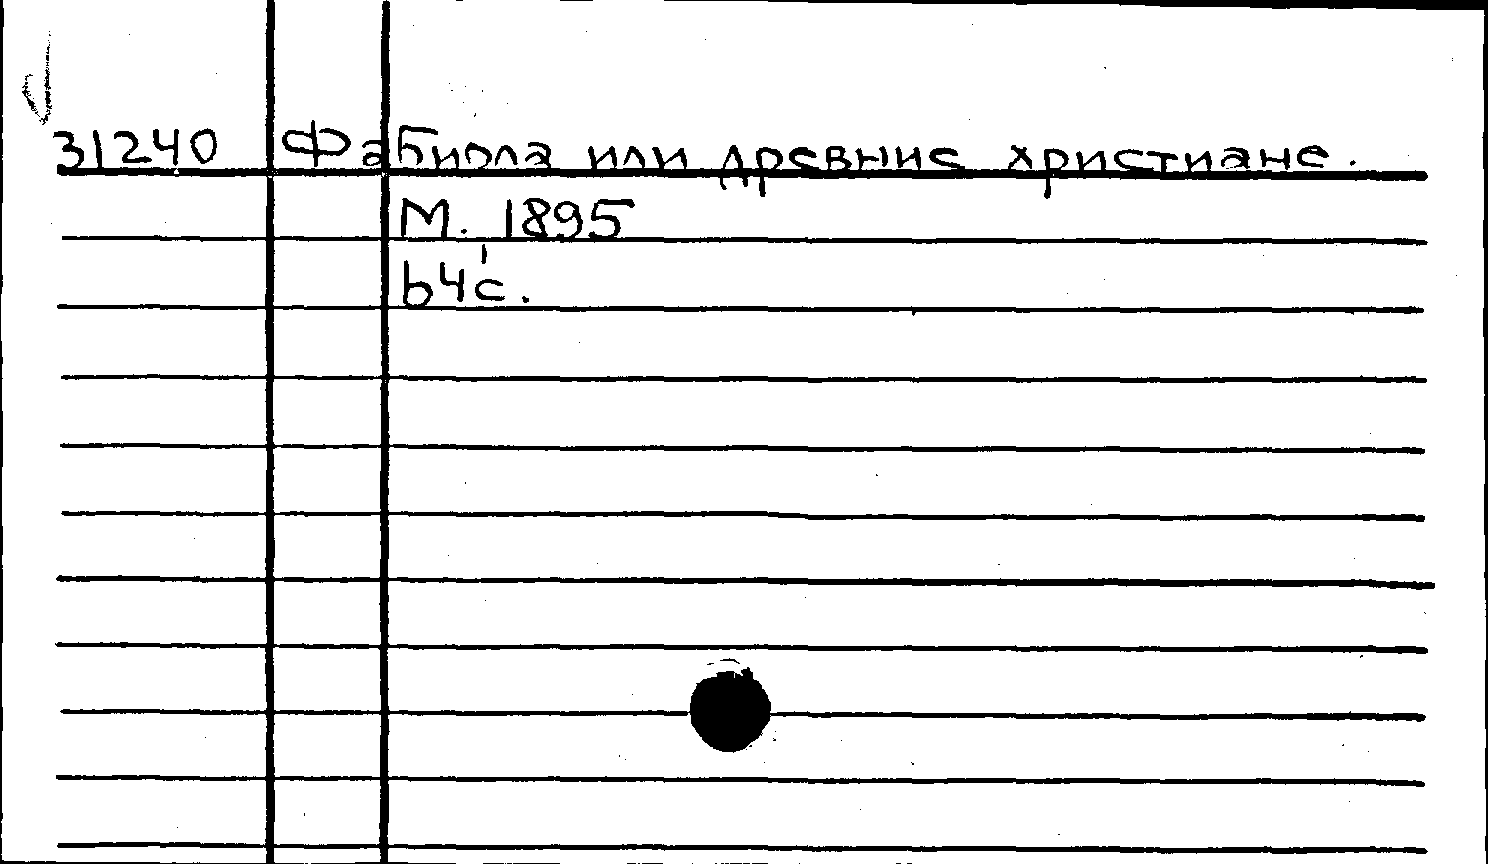 31240 Фабиола или древние христиане.
М. 1895
64 с.